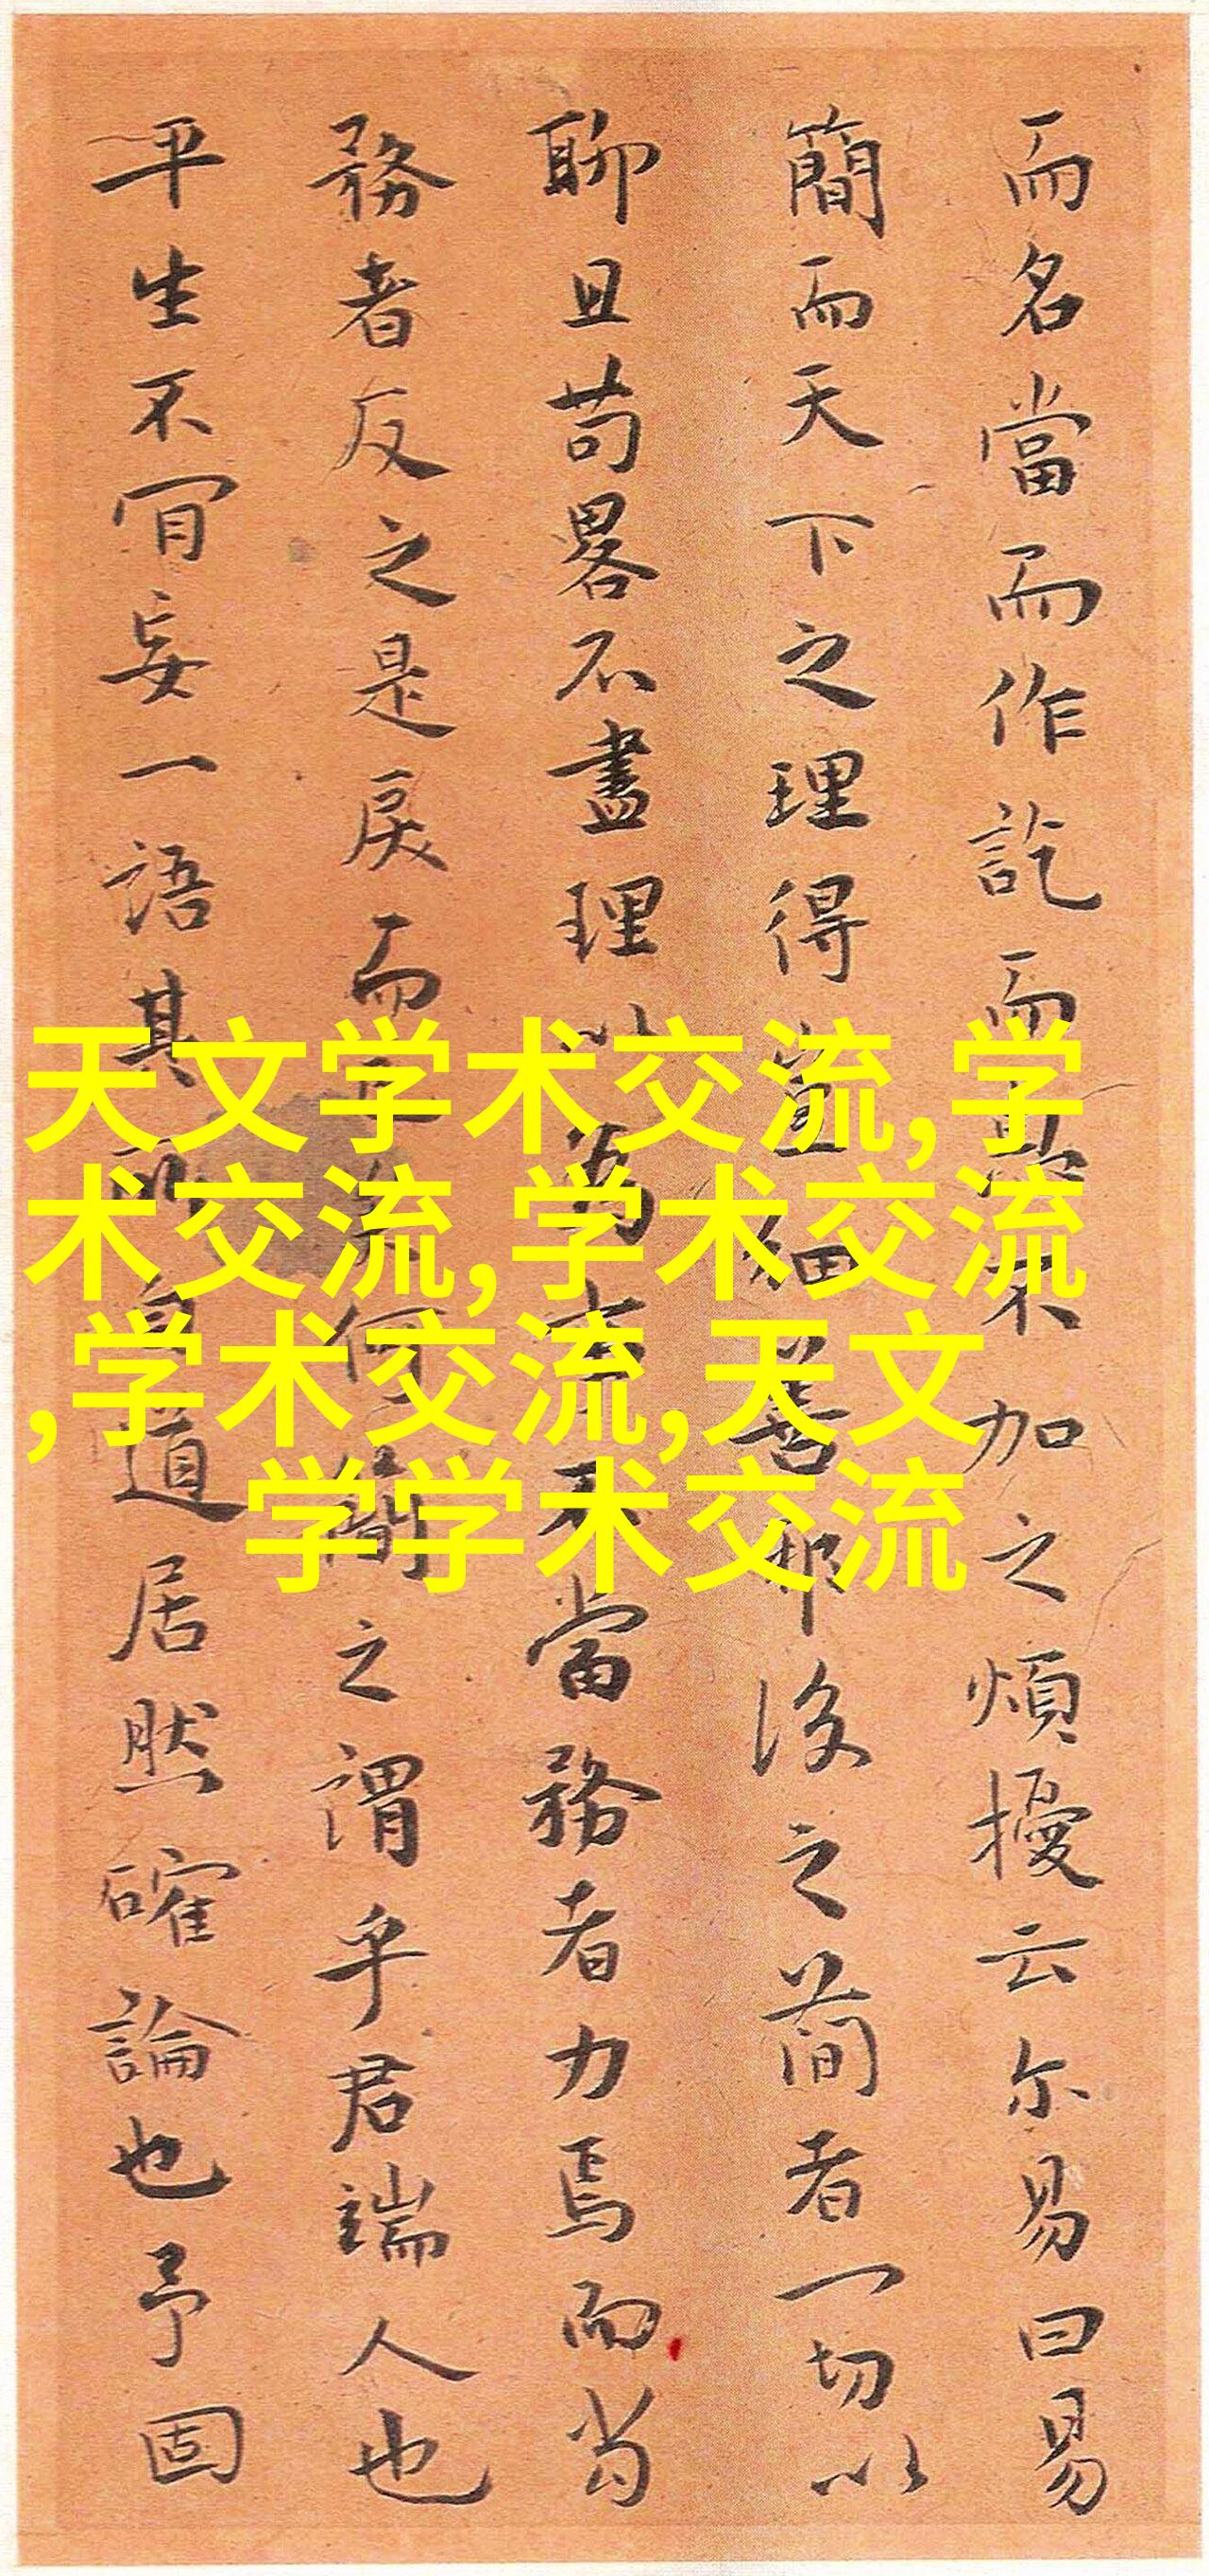 而名當而作訖而不加之煩擾云尔易曰易
簡而天下之理得豈細善邪後之簡者一切以
聊且苟畧不盡理以為當務者力焉而当
務者反之是戾而何簡之謂乎君端人也
平生不肎妄一語其所自道居然確論也予固
天文学术交流,学
术交流,学术交流
,学术交流,天文
学学术交流